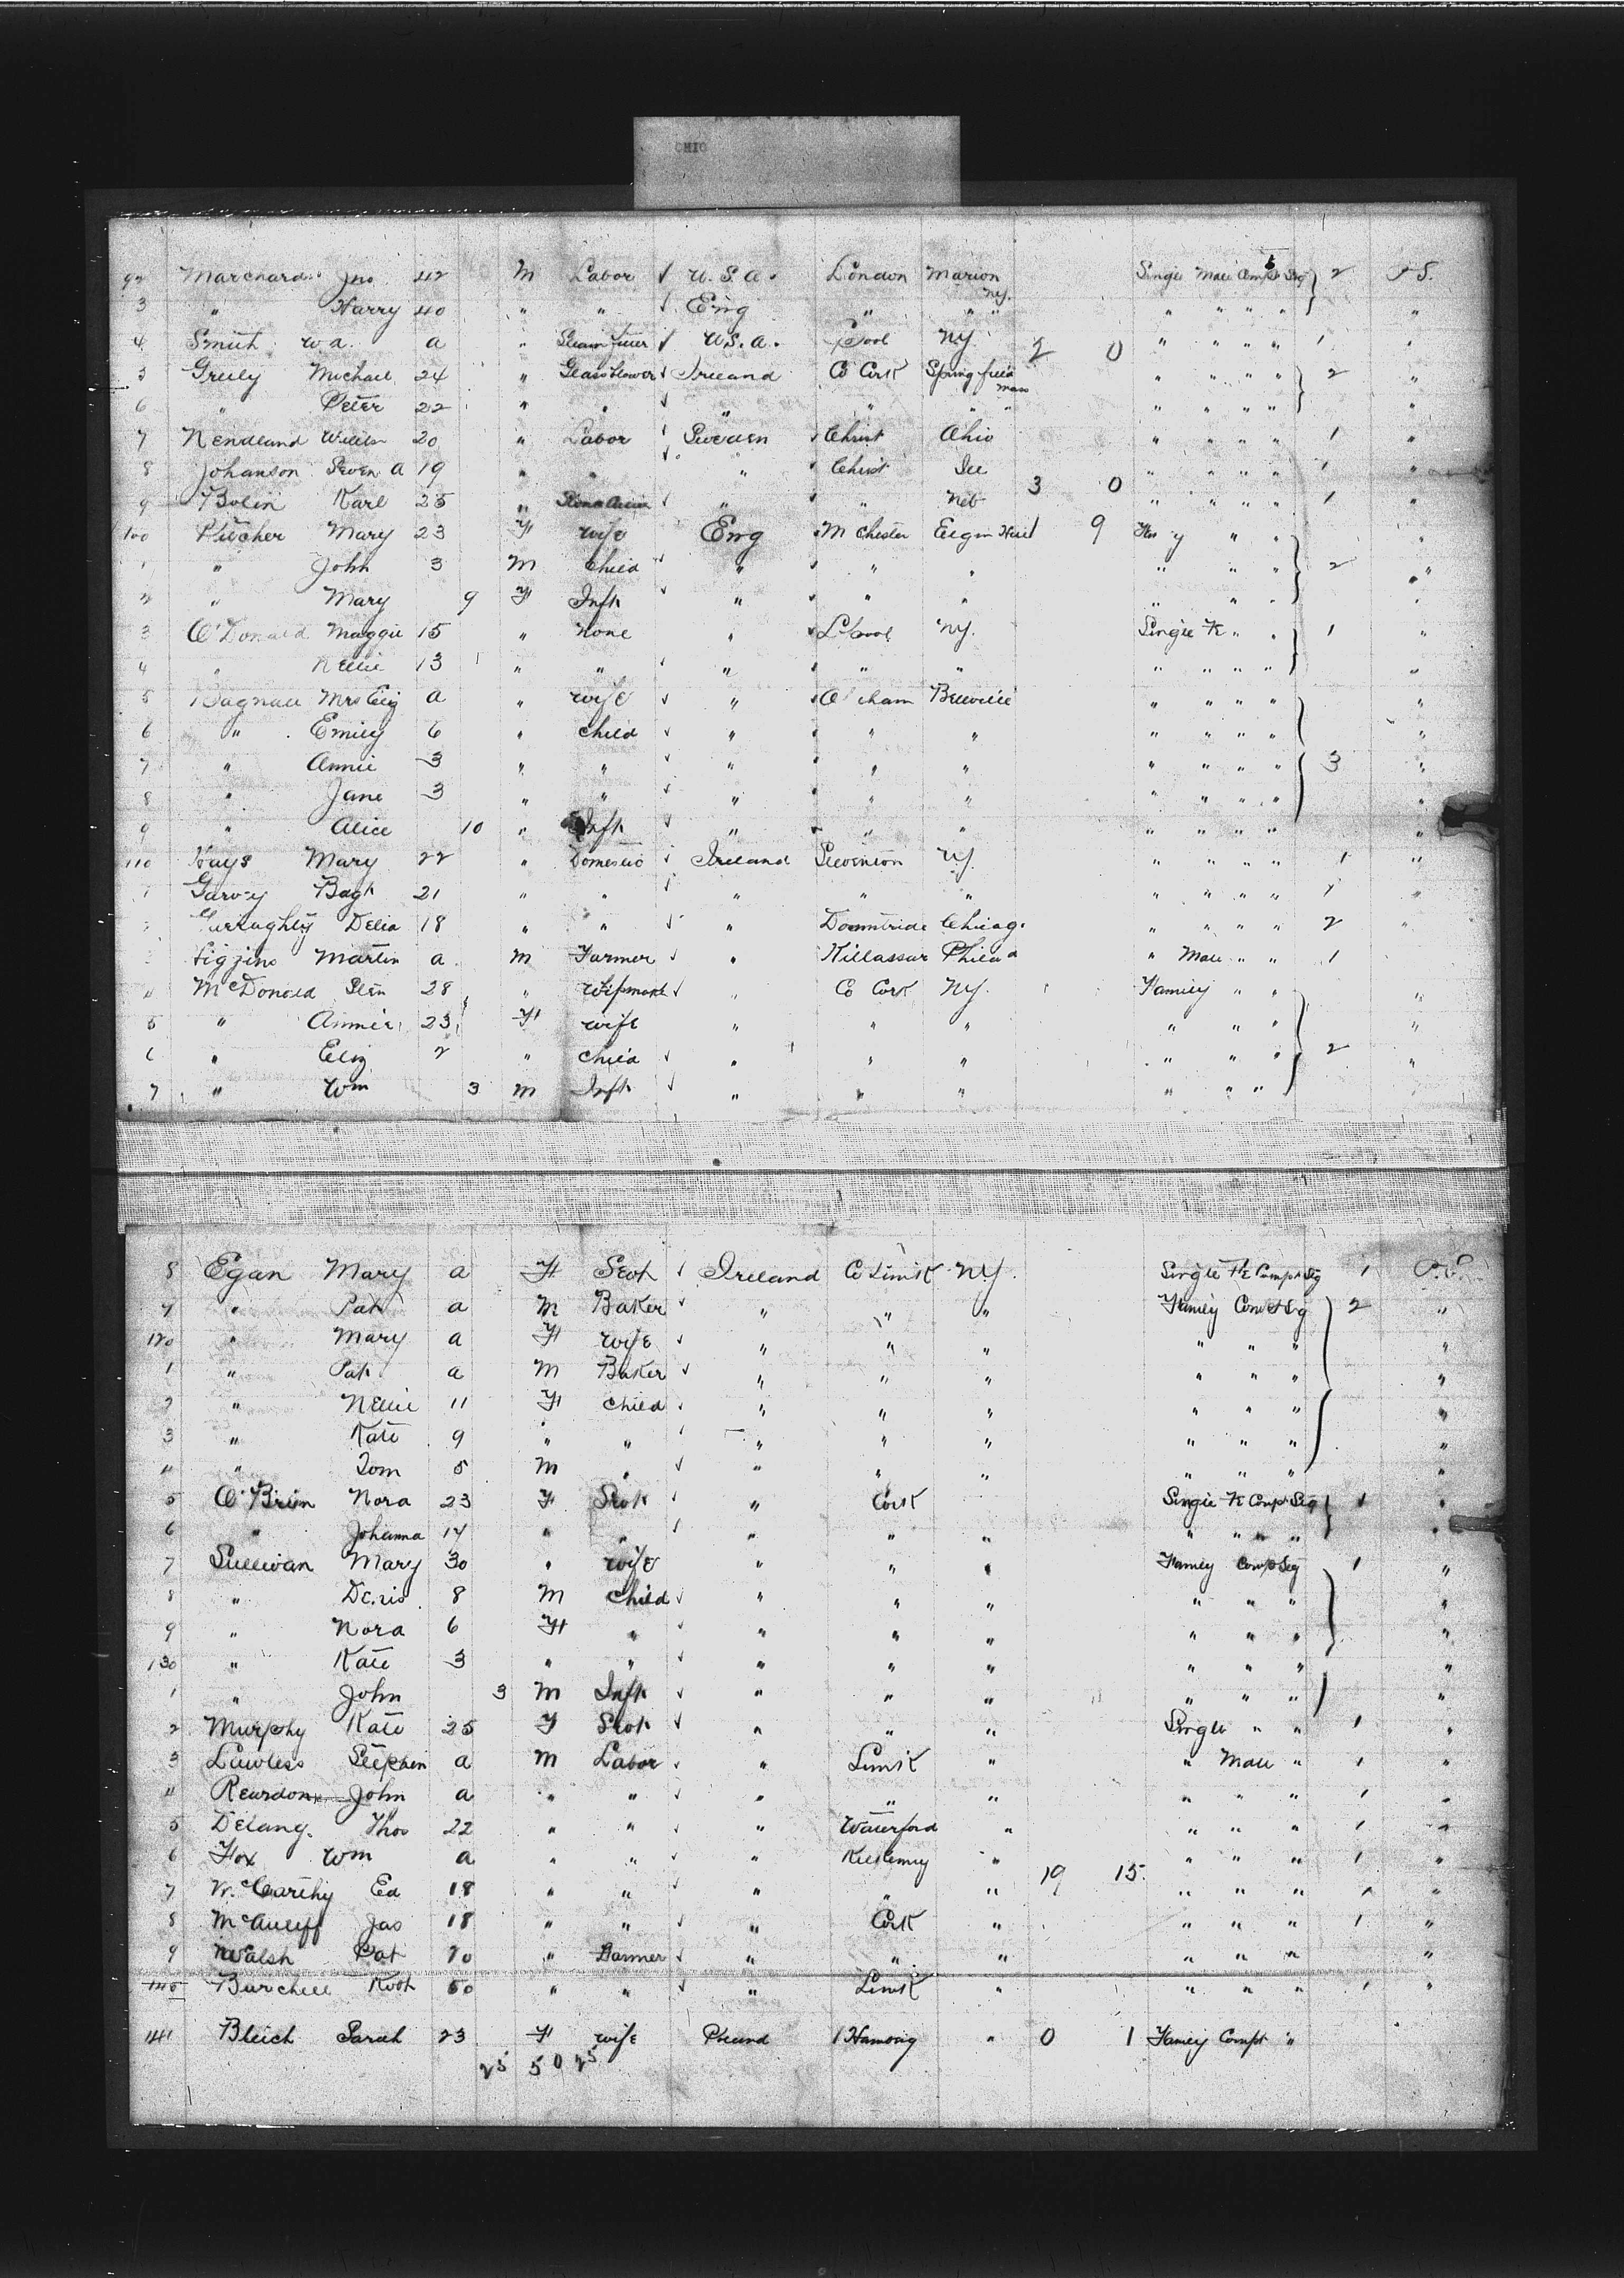 OHIO
92 Marchard Jno 42 M Labor ✓ U.S.A. London Marion NY. Single Male Compt Stg 2 P S.
3 " Harry 40 " " ✓ Eng " " " " " " " "
4 Smith W.A. a " Steam fitter ✓ U.S.A. L'pool NY. 2 0 " " " " 1 "
5 Greely Michael 24 " Glass blower ✓ Ireland Co Cork Springfield Mass " " " " 2 "
6 " Peter 22 " " ✓ " " " " " " " " "
7 Willm 20 " Labor ✓ Sweden Christ Ohio " " " " 1 "
8 Johanson Seven A 19 " " ✓ " Christ Ill " " " " 1 "
9 Bolin Karl 25 " ✓ " " Neb 3 0 " " " " 1 "
100 Pitcher Mary 23 F wife Eng M Chester Elgin 9 " " "
1 " John 3 M Child ✓ " " " " " " 2 "
2 " Mary 9 F Inft ✓ " " " " " " "
3 O'Donald Maggie 15 " None " L'pool NY. Single F " " 1 "
4 " Nellie 13 " " ✓ " " " " " " " "
5 Bagnall Mrs Eliz a " wife ✓ " Oldham Belleville " " " " "
6 " Emily 6 " Child ✓ " " " " " " " "
7 " Annie 3 " " ✓ " " " " " " " 3 "
8 " Jane 3 " " ✓ " " " " " " " "
9 " Alice 10 " Inft ✓ " " " " " " " "
110 Hays Mary 22 " Domestic ✓ Ireland NY. " " " " 1 "
1 Garvy Bagt 21 " " ✓ " " " " " " " 1 "
2 Delia 18 " " ✓ " Chicago " " " " 2 "
3 Higgins Martin a M Farmer ✓ " Killassar Philad " Male " " 1
4 McDonald 28 " ✓ " Co Cork NY. Family " " "
5 " Annie 23 F wife " " " " " " "
6 " Eliz 2 " Child ✓ " " " " " " 2 "
7 " Wm 3 M Inft ✓ " " " " " " "
8 Egan Mary a F Servt ✓ Ireland Co Limk NY. Single Fe Compt Stg 1 P.S.
9 " Pat a M Baker ✓ " " " Family Compt Stg 2 "
120 " Mary a F wife ✓ " " " " " " "
1 " Pat a M Baker ✓ " " " " " " "
2 " Nellie 11 F Child ✓ " " " " " " "
3 " Kate 9 " " ✓ " " " " " " "
4 " Tom 5 M " ✓ " " " " " " "
5 O'Brien Nora 23 F Servt ✓ " Cork Single F Compt Stg 1 "
6 " Johanna 14 " " ✓ " " " " " " " "
7 Sullivan Mary 30 " wife " " " Family Compt Stg 1 "
8 " Denis 8 M Child ✓ " " " " " " "
9 " Nora 6 F " ✓ " " " " " " "
130 " Kate 3 " " ✓ " " " " " " "
1 " John 3 M Inft ✓ " " " " " " "
2 Murphy Kate 25 F Servt ✓ " " " Single " " 1 "
3 Lawless Stephen a M Labor ✓ " Limk " " Male " 1 "
4 Reardon John a " " ✓ " " " " " " 1 "
5 Delany Thos 22 " " ✓ " Waterford " " " " 1 "
6 Fox Wm a " " ✓ " Kilkenny " " " " 1 "
7 McCarthy Ed 18 " " ✓ " " " 19 15 " " " 1 "
8 McAuliff Jas 18 " " ✓ " Cork " " " " 1 "
9 Walsh Pat 70 " Farmer ✓ " " " " " " "
140 Burchell Robt 60 " " ✓ " Limk " " " " 1 "
141 Bleich Sarah 23 F wife " 0 1 Family Compt "
25 50 25